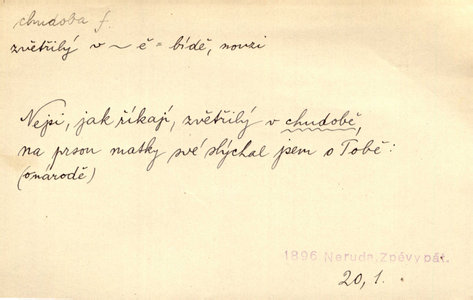 chudoba f.
zvětřilý v ~ ě = bídě, nouzi
Nejsi, jak říkají, zvětřilý v chudobě,
na prsou matky své slýchal jsem o Tobě:
(o národě)
1896 Neruda, Zpěvy pát.
20, 1.